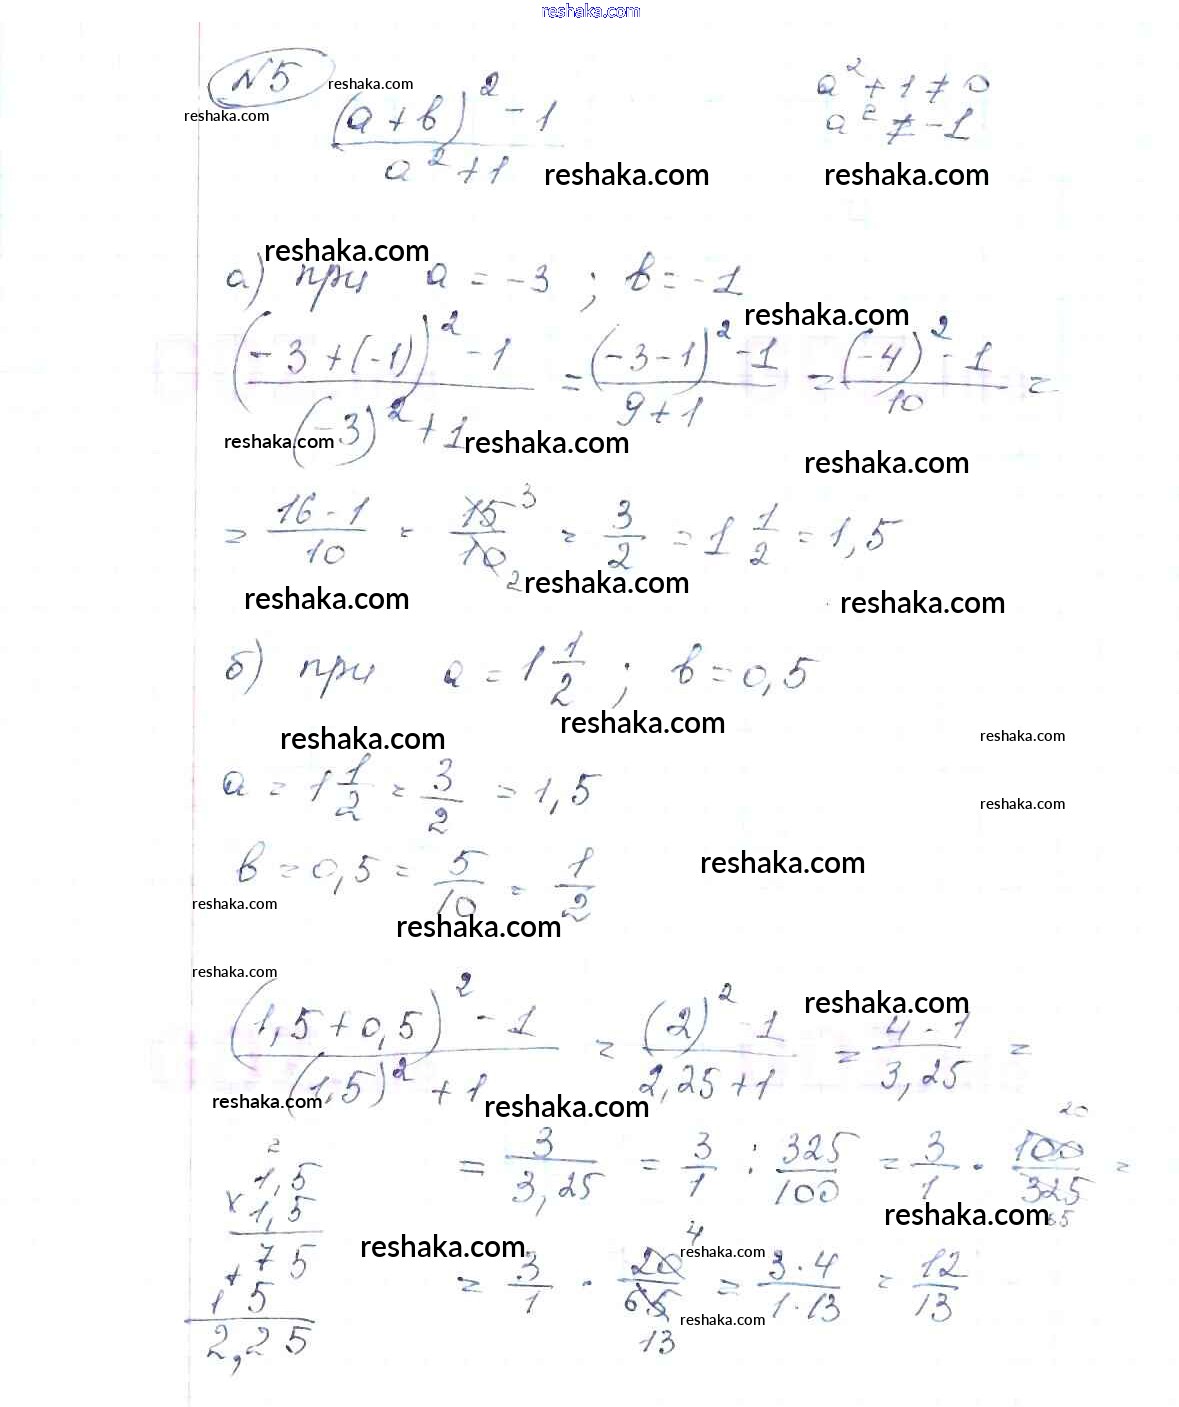 reshaka.com
№5 reshaka.com a² + 1 ≠ 0
reshaka.com
((a + b)² - 1)/(a² + 1) a² ≠ -1
reshaka.com reshaka.com
reshaka.com
а) при a = -3 ; b = -1
reshaka.com
((-3 + (-1))² - 1)/((-3)² + 1) = ((-3 - 1)² - 1)/(9 + 1) = ((-4)² - 1)/10 =
reshaka.com reshaka.com reshaka.com
= (16 - 1)/10 = 15/10 3 2 = 3/2 = 1 1/2 = 1,5
reshaka.com reshaka.com reshaka.com
б) при a = 1 1/2 ; b = 0,5
reshaka.com reshaka.com reshaka.com
a = 1 1/2 = 3/2 = 1,5
reshaka.com
b = 0,5 = 5/10 = 1/2
reshaka.com
reshaka.com reshaka.com
reshaka.com
((1,5 + 0,5)² - 1)/((1,5)² + 1) = ((2)² - 1)/(2,25 + 1) = (4 - 1)/3,25 =
reshaka.com
reshaka.com reshaka.com
= 3/3,25 = 3/1 : 325/100 = 3/1 · 100/325 20 65 =
reshaka.com
2
1,5
× 1,5
+ 75
15
2,25
reshaka.com reshaka.com
= 3/1 · 20/65 4 13 = (3 · 4)/(1 · 13) = 12/13
reshaka.com